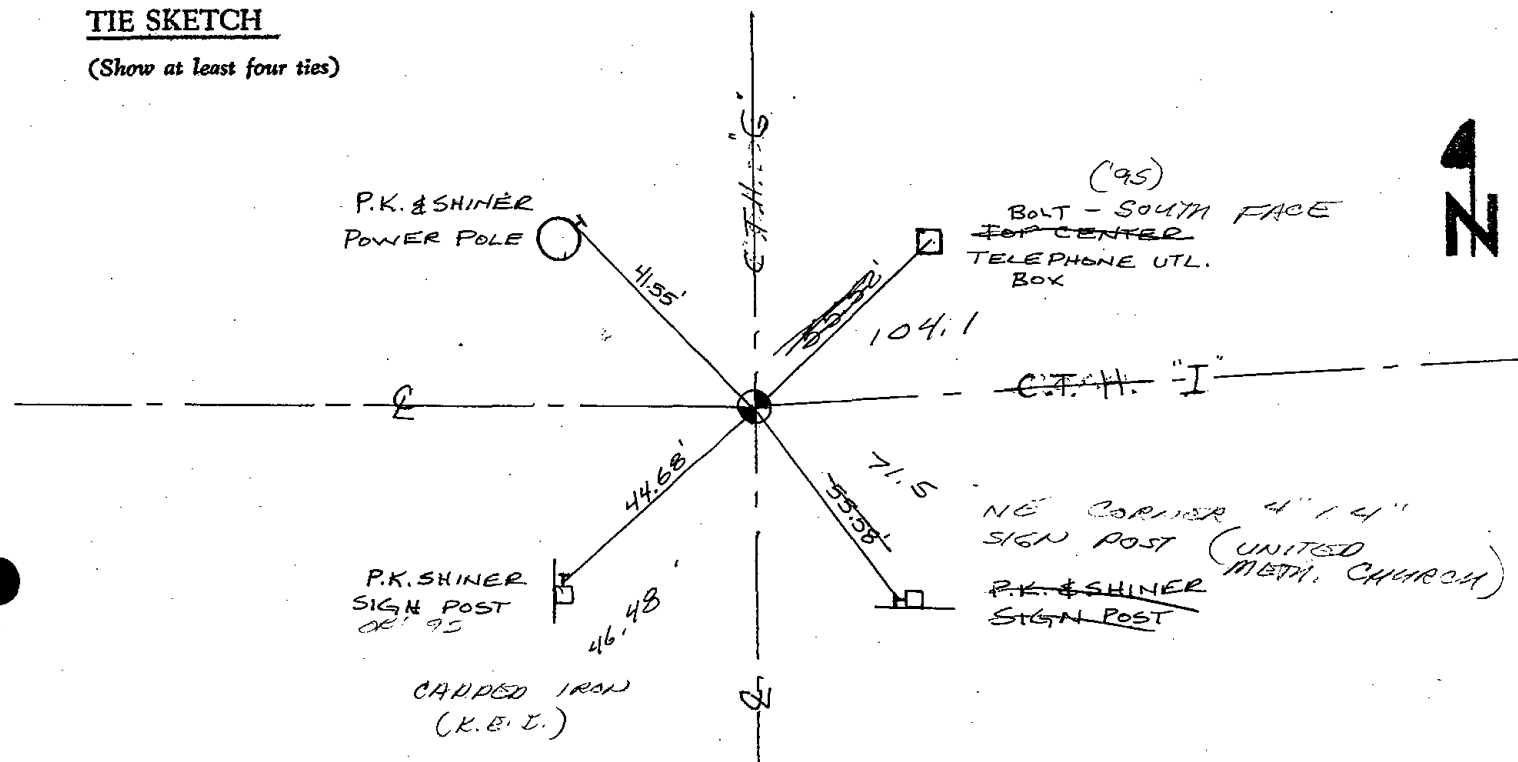 TIE SKETCH
(Show at least four ties)
C.T.H. "G"
('95)
P.K. & SHINER
POWER POLE
BOLT - SOUTH FACE
TOP CENTER
TELEPHONE UTL.
BOX
N
41.55'
104.1
C.T.H. "I"
℄
44.68'
71.5
55.58'
NE CORNER 4" x 4"
SIGN POST (UNITED
METH. CHURCH)
P.K. SHINER
SIGN POST
46.48'
P.K. & SHINER
SIGN POST
CAPPED IRON
(K.E.I.)
℄